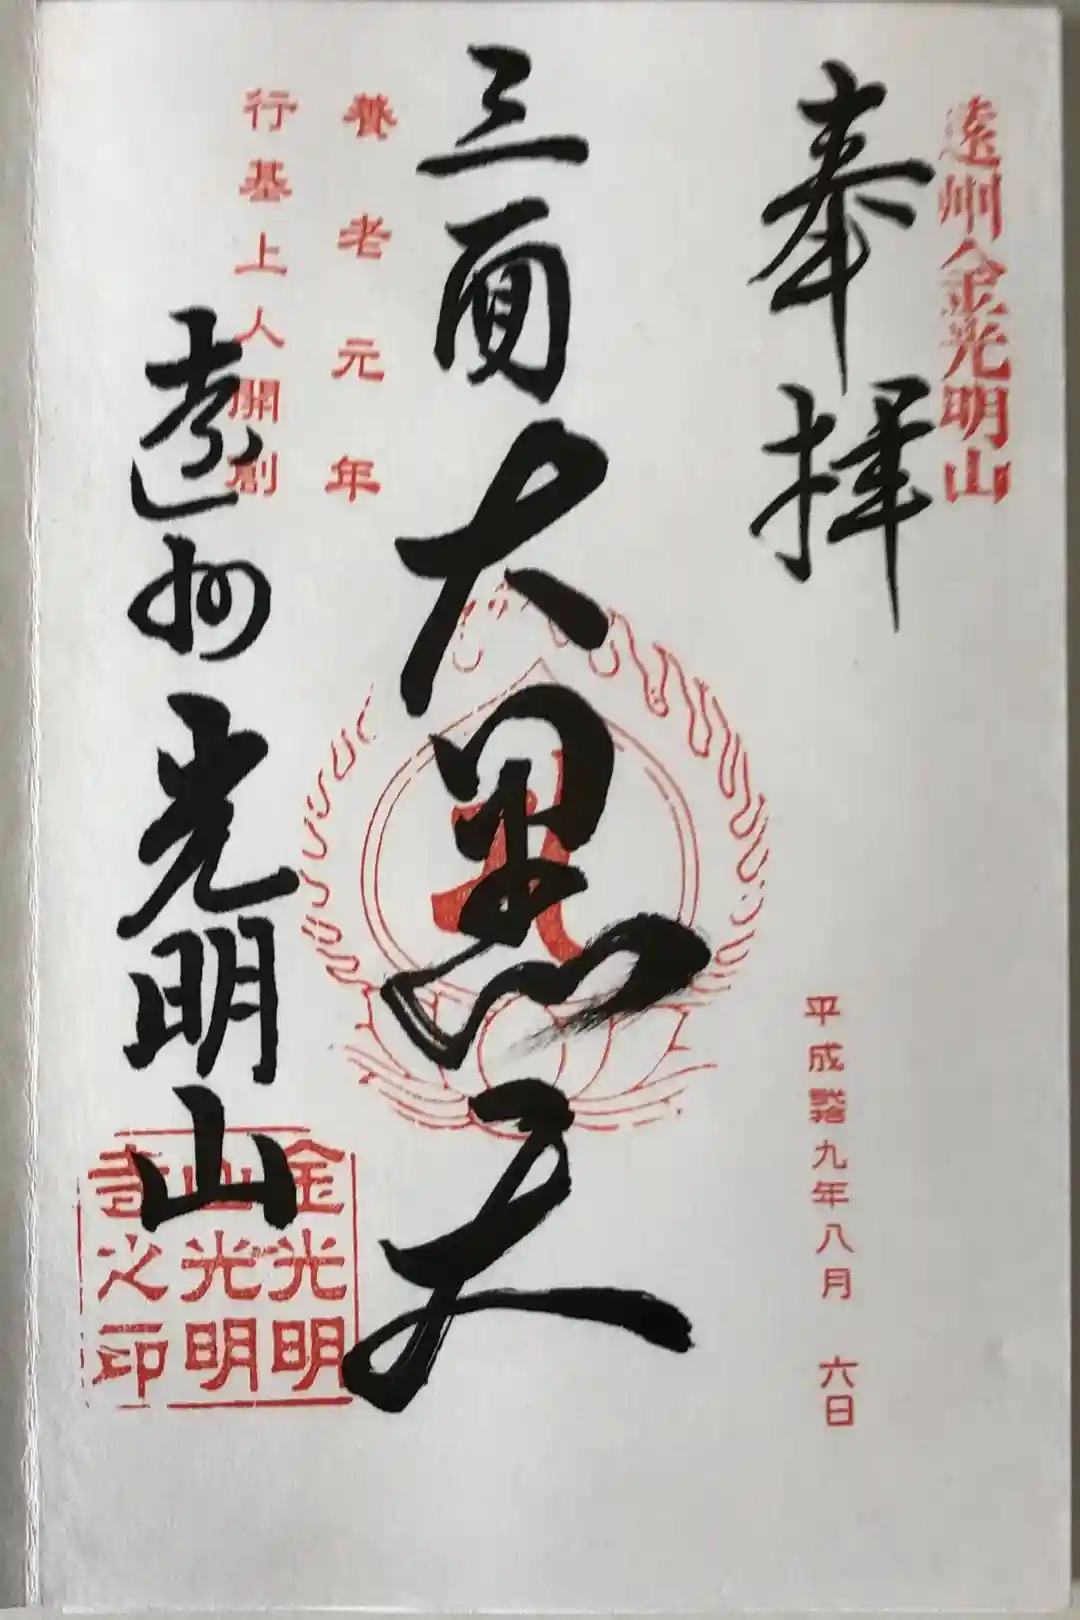 遠州金光明山
奉拝
平成弐拾九年八月 六日
三面大黒天
養老元年
行基上人開創
遠州光明山
金光明
山光明
寺之印